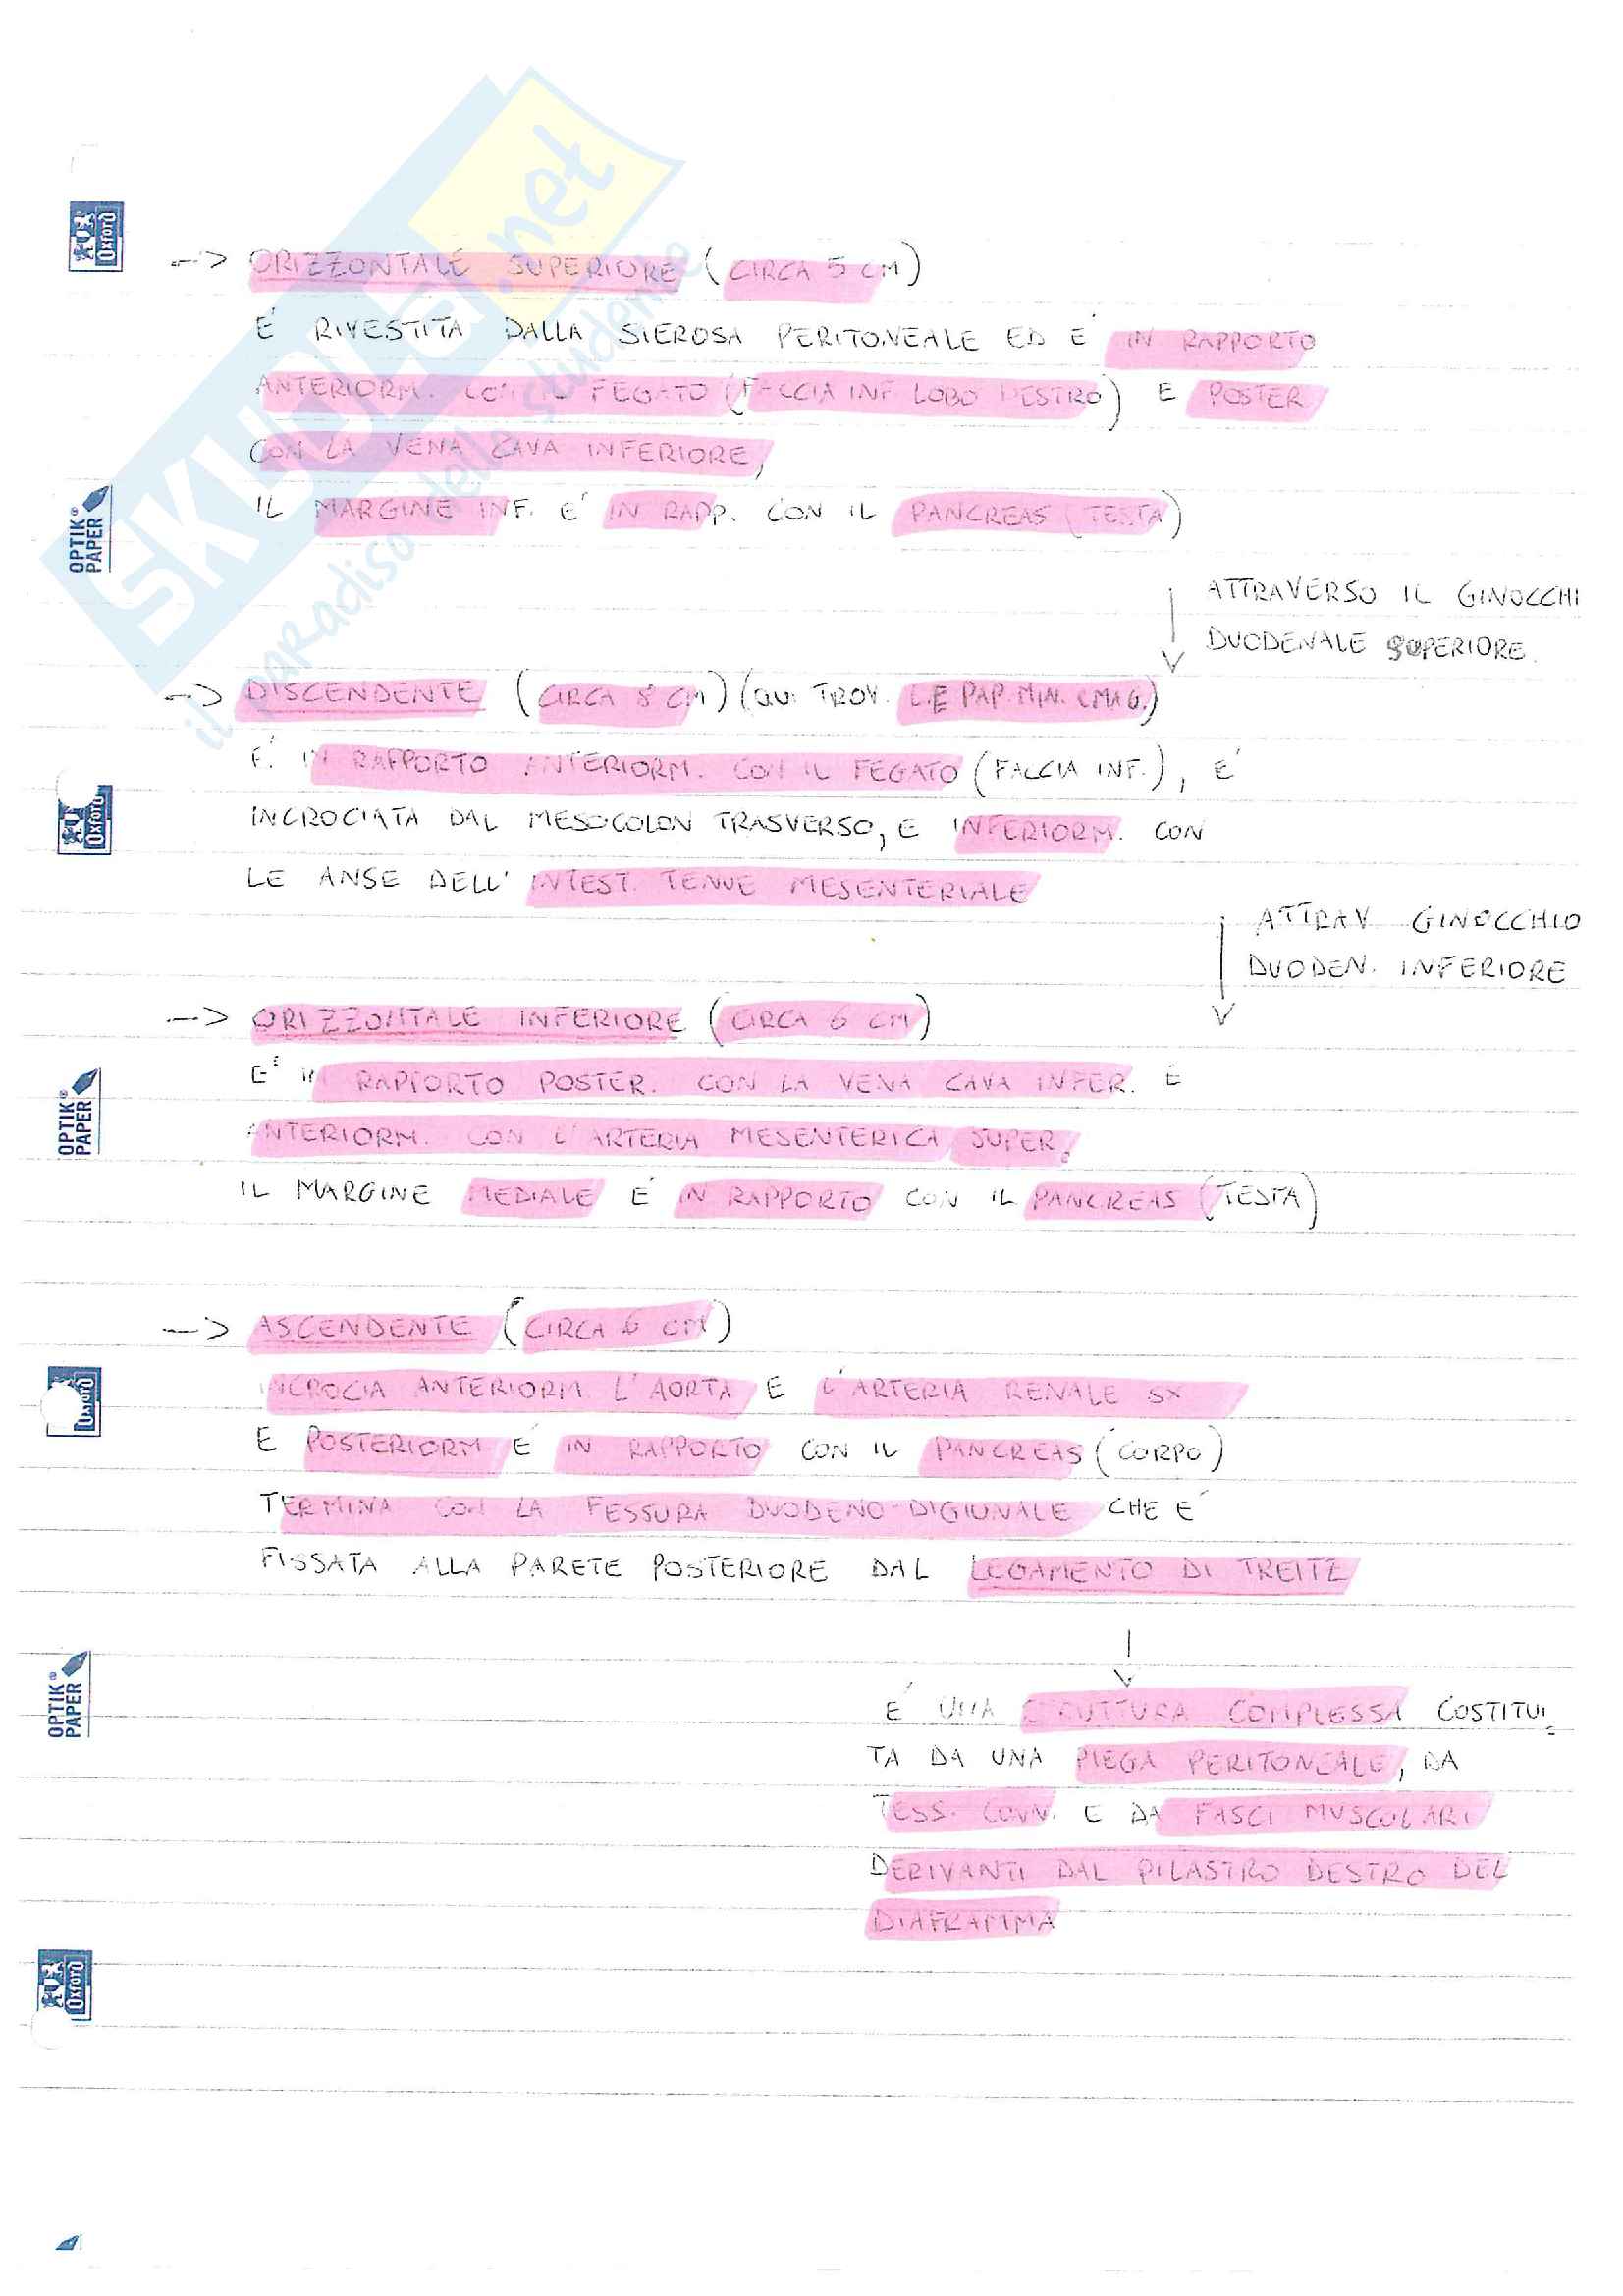 SKUOLA.net
il paradiso dello studente
Oxford
OPTIK® PAPER
Oxford
OPTIK® PAPER
Oxford
OPTIK® PAPER
Oxford
--> ORIZZONTALE SUPERIORE (CIRCA 5 CM)
E' RIVESTITA DALLA SIEROSA PERITONEALE ED E' IN RAPPORTO
ANTERIORM. CON IL FEGATO (FACCIA INF LOBO DESTRO) E POSTER
CON LA VENA CAVA INFERIORE,
IL MARGINE INF. E' IN RAPP. CON IL PANCREAS (TESTA)
↓ ATTRAVERSO IL GINOCCHI
DUODENALE SUPERIORE.
--> DISCENDENTE (CIRCA 8 CM) (QUI TROV. LE PAP. MIN. E MAG.)
E' IN RAPPORTO ANTERIORM. CON IL FEGATO (FACCIA INF.), E'
INCROCIATA DAL MESOCOLON TRASVERSO, E INFERIORM. CON
LE ANSE DELL' INTEST. TENUE MESENTERIALE
↓ ATTRAV GINOCCHIO
DUODEN. INFERIORE
--> ORIZZONTALE INFERIORE (CIRCA 6 CM)
E' IN RAPPORTO POSTER. CON LA VENA CAVA INFER. E
ANTERIORM. CON L'ARTERIA MESENTERICA SUPER.
IL MARGINE MEDIALE E' IN RAPPORTO CON IL PANCREAS (TESTA)
--> ASCENDENTE (CIRCA 6 CM)
INCROCIA ANTERIORM. L'AORTA E L'ARTERIA RENALE SX
E POSTERIORM E' IN RAPPORTO CON IL PANCREAS (CORPO)
TERMINA CON LA FESSURA DUODENO-DIGIUNALE CHE E'
FISSATA ALLA PARETE POSTERIORE DAL LEGAMENTO DI TREITZ
↓
E' UNA STRUTTURA COMPLESSA COSTITUI=
TA DA UNA PIEGA PERITONEALE, DA
TESS. CONN. E DA FASCI MUSCOLARI
DERIVANTI DAL PILASTRO DESTRO DEL
DIAFRAMMA